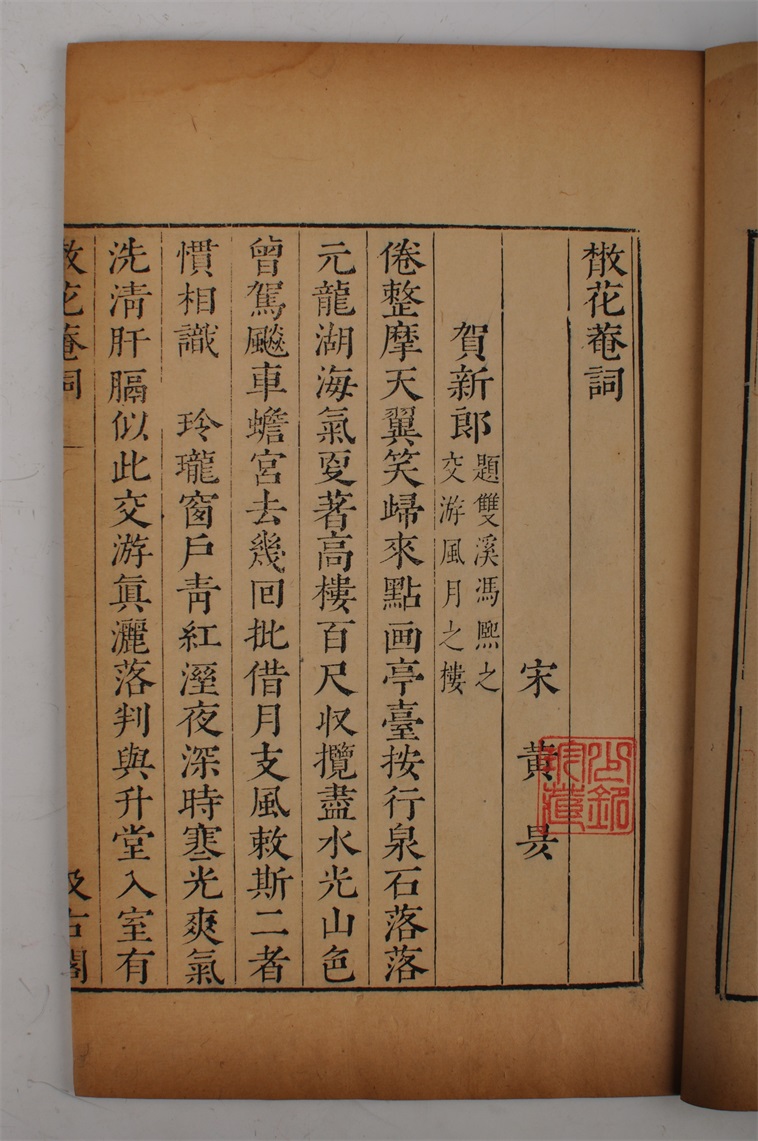 散花菴詞
宋 黃 昃
賀新郎 題雙溪馮熈之
交游風月之樓
倦整摩天翼笑歸來點画亭臺按行泉石落落
元龍湖海氣更著高樓百尺収攬盡水光山色
曾駕飈車蟾宮去幾囘批借月支風敕斯二者
慣相識 玲瓏窗戶靑紅溼夜深時寒光爽氣
洗清肝膈似此交游眞灑落判與升堂入室有
散花菴詞
汲古閣